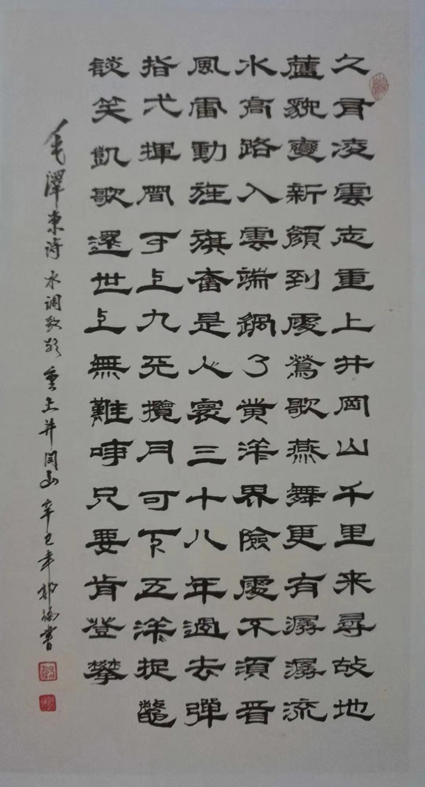 久有凌雲志重上井岡山千里来尋故地
舊貌變新顔到處鶯歌燕舞更有潺潺流
水高路入雲端過了黄洋界險處不須看
風雷動旌旗奮是人寰三十八年過去彈
指弌揮間可上九天攬月可下五洋捉鼈
談笑凱歌還世上無難事只要肯登攀
毛澤東诗 水调歌头 重上井冈山 辛巳年 書